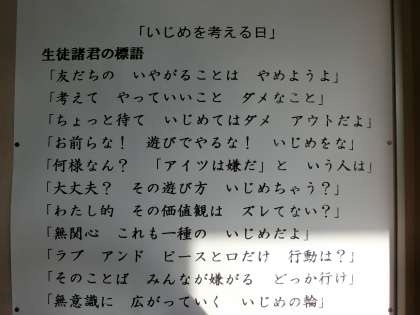 「いじめを考える日」
生徒諸君の標語
「友だちの　いやがることは　やめようよ」
「考えて　やっていいこと　ダメなこと」
「ちょっと待て　いじめてはダメ　アウトだよ」
「お前らな！　遊びでやるな！　いじめをな」
「何様なん？　「アイツは嫌だ」と　いう人は」
「大丈夫？　その遊び方　いじめちゃう？」
「わたし的　その価値観は　ズレてない？」
「無関心　これも一種の　いじめだよ」
「ラブ　アンド　ピースと口だけ　行動は？」
「そのことば　みんなが嫌がる　どっか行け」
「無意識に　広がっていく　いじめの輪」